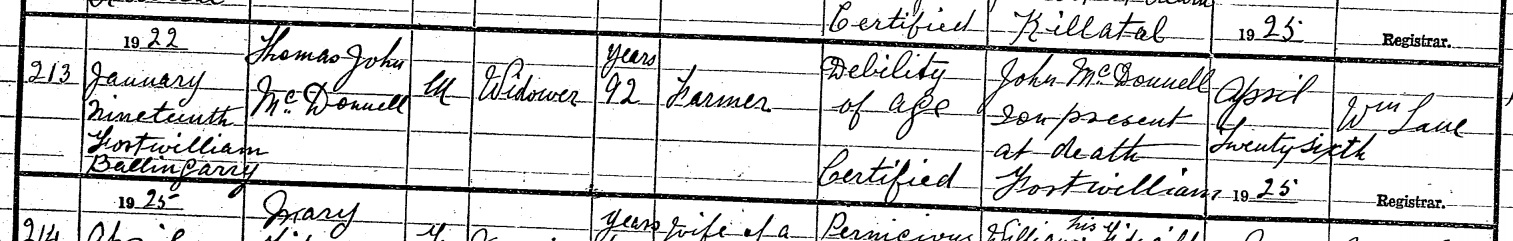 Certified Killatal 1925 Registrar.
213
1922
January
nineteenth
Fortwilliam
Ballingarry
Thomas John
McDonnell
M
Widower
years
92
Farmer
Debility
of age
Certified
John McDonnell
son present
at death
Fortwilliam
April
Twenty sixth
1925
Wm Lane
Registrar.
214
1925
Mary
years
wife of a
Pernicious
his